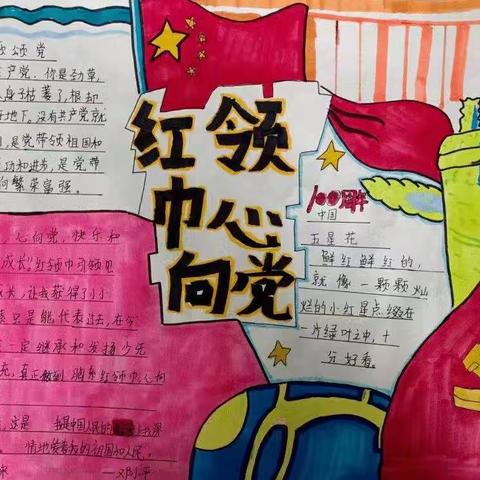 颂领党
产党,你是劲草,
身子枯萎了,根却
地下。没有共产党就
是党带领祖国和
动和进步,是党带
向繁荣富强。
红领
巾心
向党
100周年
中国
五星花
鲜红鲜红的,
就像一颗颗灿
烂的小红星点缀在
一片绿叶之中,十
分好看。
心向党,快乐和
成长。红领巾引领见
长,让我获得了小小
只是能代表过去,在今
一定继承和发扬少先
充,真正做到胸系红领巾心向
这是 我是中国人民的 深
情地爱着我的祖国和人民。
——邓小平